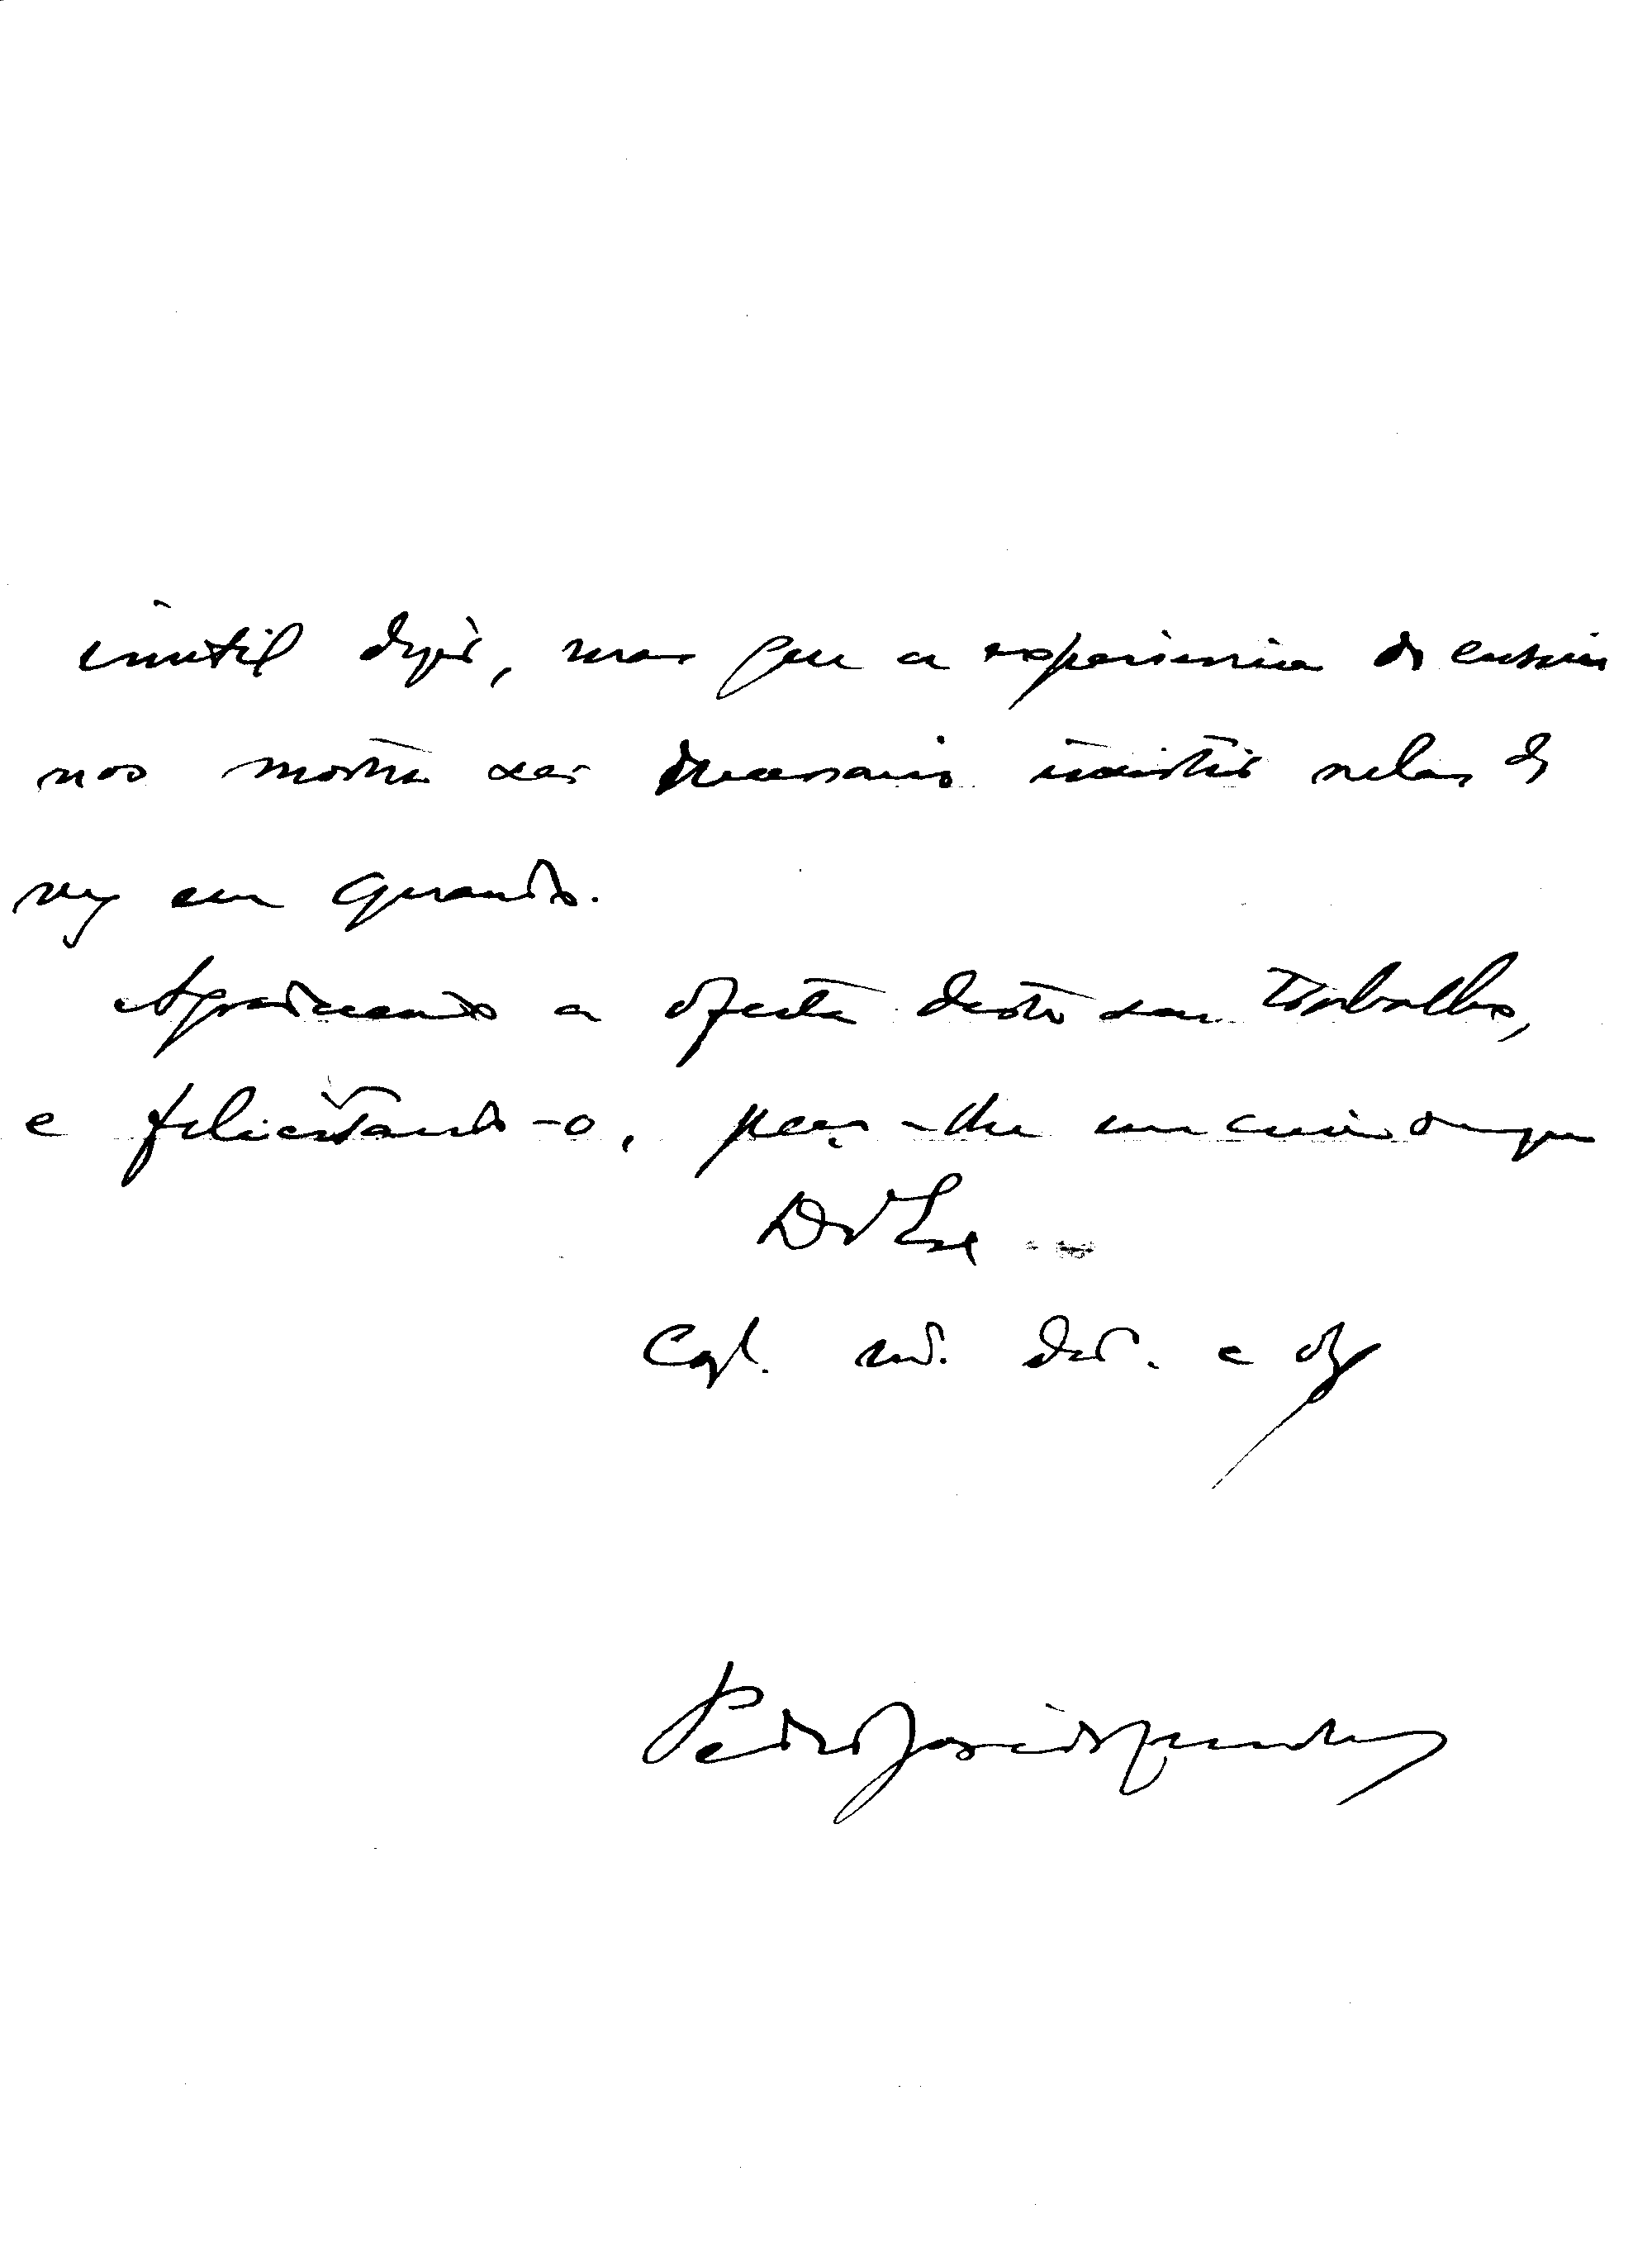 inutil dizer, mas que a experiencia do ensino
nos mostra ser necessario insistir nelas de
vez em quando.
Agradecendo a oferta deste seu trabalho,
e felicitando-o, peço-lhe me creia sempre
De V. Ex.
Col. e
Pedro José da Cunha